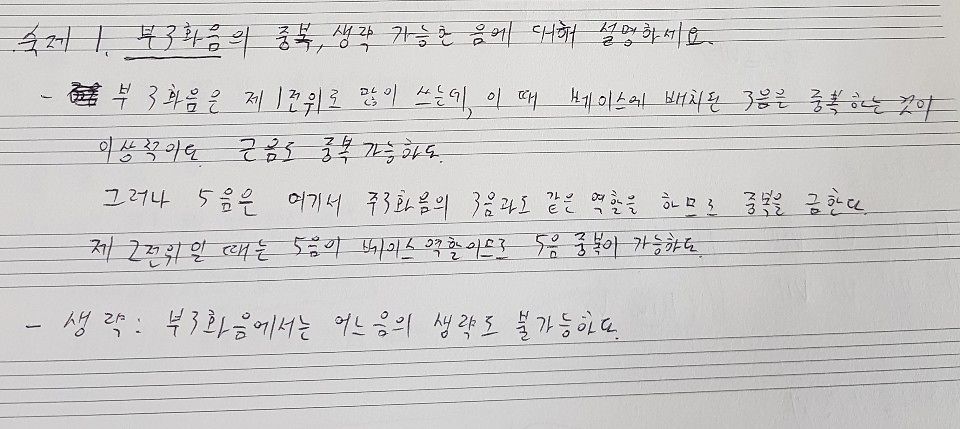 숙제 1. 부3화음의 중복, 생략 가능한 음에 대해 설명하세요.
- 부 3화음은 제1전위로 많이 쓰는데, 이 때 베이스에 배치된 3음을 중복하는 것이
이상적이다. 근음도 중복 가능하다.
그러나 5음은 여기서 주3화음의 3음과도 같은 역할을 하므로 중복을 금한다.
제 2전위일 때는 5음이 베이스역할이므로 5음 중복이 가능하다.
- 생략 : 부3화음에서는 어느음의 생략도 불가능하다.